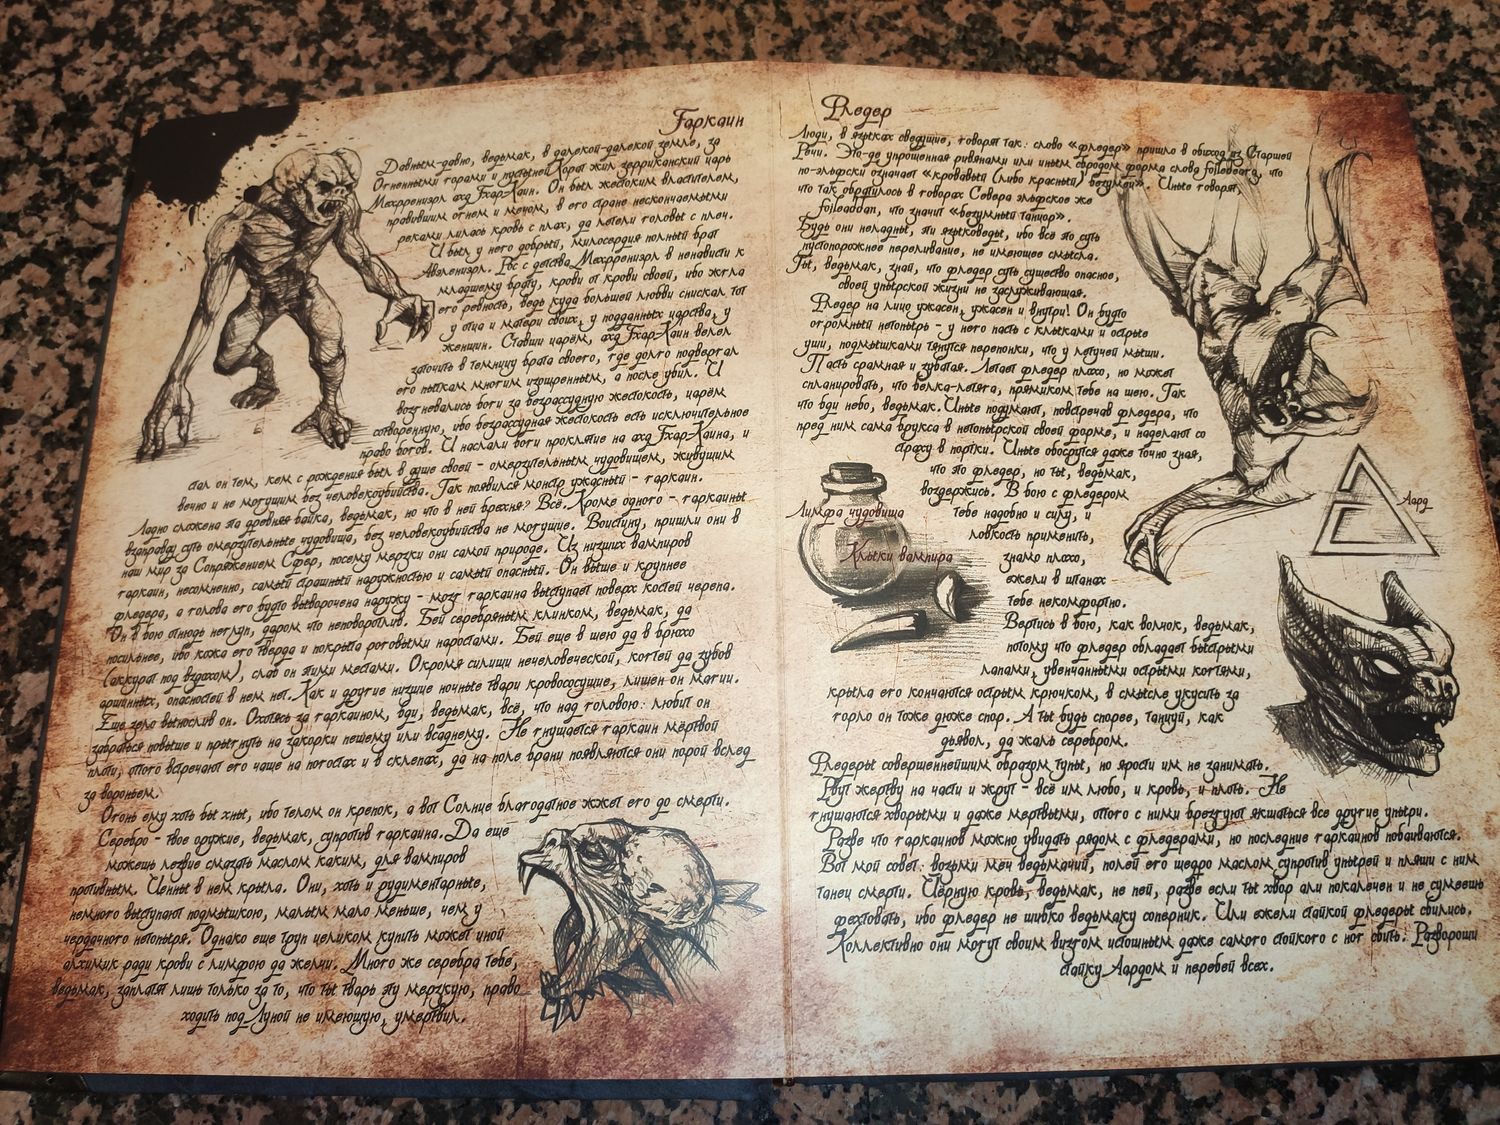 Гаркаин
Давным-давно, ведьмак, в далекой-далекой земле, за
Огненными горами и пустыней Корат жил зерриканский царь
Мехрриенизрл ахд Гхар-Каин. Он был жестоким властителем,
правившим огнем и мечом, в его стране нескончаемыми
реками лилась кровь с плах, да летели головы с плеч.
И был у него добрый, милосердия полный брат
Рос с детства Мехрриенизрл в ненависти к
младшему брату, крови от крови своей, ибо жгла
его ревность, ведь куда большей любви снискал тот
у отца и матери своих, у подданных царства, у
женщин. Ставши царём, ахд Гхар-Каин велел
заточить в темницу брата своего, где долго подвергал
его пыткам многим изощренным, а после убил. И
возгневались боги за безрассудную жестокость, царём
сотворенную, ибо безрассудная жестокость есть исключительное
право богов. И наслали боги проклятие на ахд Гхар-Каина, и
стал он тем, кем с рождения был в душе своей - омерзительным чудовищем, живущим
вечно и не могущим без человекоубийства. Так появился монстр ужасный - гаркаин.
Ладно сложена эта древняя байка, ведьмак, но что в ней брехня? Всё. Кроме одного - гаркаины
взаправду суть омерзительные чудовища, без человекоубийства не могущие. Воистину, пришли они в
наш мир за Сопряжением Сфер, посему мерзки они самой природе. Из низших вампиров
гаркаин, несомненно, самый страшный наружностью и самый опасный. Он выше и крупнее
фледера, а голова его будто выворочена наружу - мозг гаркаина выступает поверх костей черепа.
Он в бою отнюдь неглуп, даром что неповоротлив. Бей серебряным клинком, ведьмак, да
посильнее, ибо кожа его тверда и покрыта роговыми наростами. Бей еще в шею да в брюхо
(аккурат под вздохом), слаб он этими местами. Окромя силищи нечеловеческой, когтей да зубов
аршинных, опасностей в нем нет. Как и другие низшие ночные твари кровососущие, лишен он магии.
Еще зело вынослив он. Охотясь за гаркаином, бди, ведьмак, всё, что над головою: любит он
забраться повыше и прыгнуть на закорки пешему или всаднему. Не гнушается гаркаин мёртвой
плоти, оттого встречают его чаще на погостах и в склепах, да на поле брани появляются они порой вслед
за вороньем.
Огонь ему хоть бы хны, ибо телом он крепок, а вот Солнце благодатное жжет его до смерти.
Серебро - твое оружие, ведьмак, супротив гаркаина. Да еще
можешь лезвие смазать маслом каким, для вампиров
противным. Ценны в нем крыла. Они, хоть и рудиментарные,
немного выступают подмышкою, малым мало меньше, чем у
чердачного нетопыря. Однако еще труп целиком купить может иной
алхимик ради крови с лимфою да желчи. Много же серебра тебе,
ведьмак, заплатят лишь только за то, что ты тварь эту мерзкую, право
ходить под Луной не имеющую, умертвил.
Фледер
Люди, в языках сведущие, говорят так: слово «фледер» пришло в обиход из Старшей
Речи. Это-де упрощенная ривянами или иным сбродом форма слова что
по-эльфски означает «кровавый (либо красный) безумец». Иные говорят,
что так обратилось в говорах Севера эльфское же
folleaddan, что значит «безумный танцор».
Будь они неладны, эти языковеды, ибо всё это суть
пустопорожнее переливание, не имеющее смысла.
Ты, ведьмак, знай, что фледер суть существо опасное,
своей упырской жизни не заслуживающая.
Фледер на лицо ужасен, ужасен и внутри! Он будто
огромный нетопырь - у него пасть с клыками и острые
уши, подмышками тянутся перепонки, что у летучей мыши.
Пасть срамная и зубатая. Летает фледер плохо, но может
спланировать, что белка-летяга, прямиком тебе на шею. Так
что бди небо, ведьмак. Иные подумают, повстречав фледера, что
пред ним сама брукса в нетопырской своей форме, и наделают со
страху в портки. Иные обосрутся даже точно зная,
что это фледер, но ты, ведьмак,
воздержись. В бою с фледером
тебе надобно и силу, и
ловкость применить,
знамо плохо,
ежели в штанах
тебе некомфортно.
Вертись в бою, как волчок, ведьмак,
потому что фледер обладает быстрыми
лапами, увенчанными острыми когтями,
крыла его кончаются острым крючком, в смысле укусить за
горло он тоже дюже спор. А ты будь спорее, танцуй, как
дьявол, да жаль серебром.
Фледеры совершеннейшим образом тупы, но ярости им не занимать.
Рвут жертву на части и жрут - всё им любо, и кровь, и плоть. Не
гнушаются хворыми и даже мертвыми, оттого с ними брезгуют якшаться все другие упыри.
Разве что гаркаинов можно увидать рядом с фледерами, но последние гаркаинов побаиваются.
Вот мой совет: возьми меч ведьмачий, полей его щедро маслом супротив упырей и пляши с ним
танец смерти. Чёрную кровь, ведьмак, не пей, разве если ты хвор али покалечен и не сумеешь
фехтовать, ибо фледер не шибко ведьмаку соперник. Или ежели стайкой фледеры сбились.
Коллективно они могут своим визгом истошным даже самого стойкого с ног сбить. Развороши
стайку Аардом и перебей всех.
Лимфа чудовища
Клыки вампира
Аард